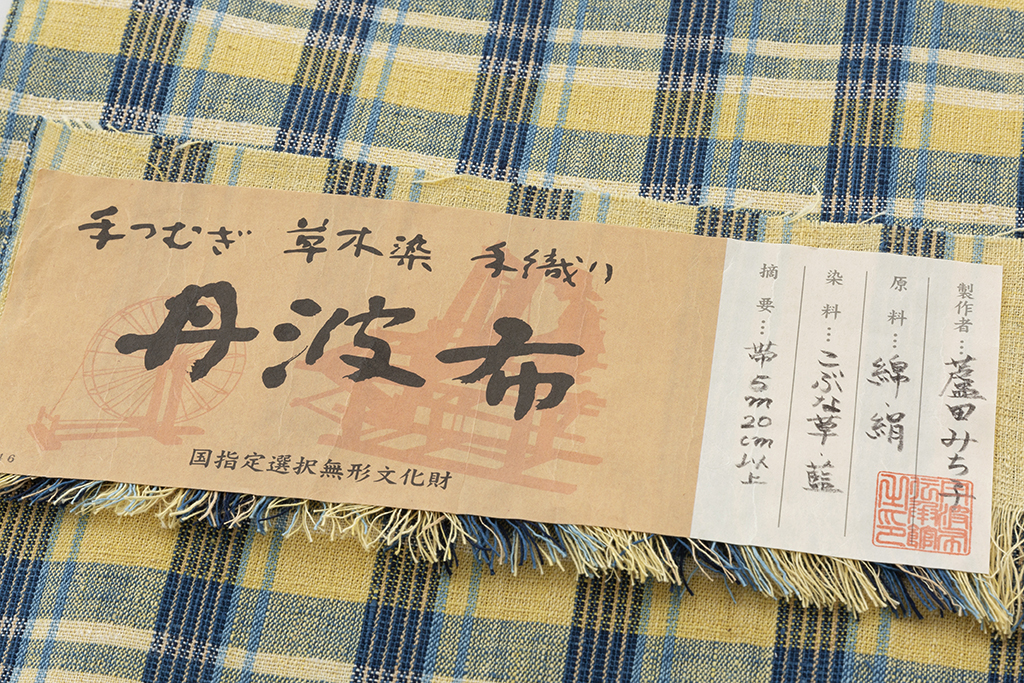 手つむぎ 草木染 手織り
丹波布
国指定選択無形文化財
46
製作者…蘆田みち子
原料…綿・絹
染料…こぶな草・藍
摘要…帯5m20cm以上
丹波布
伝承館
之印